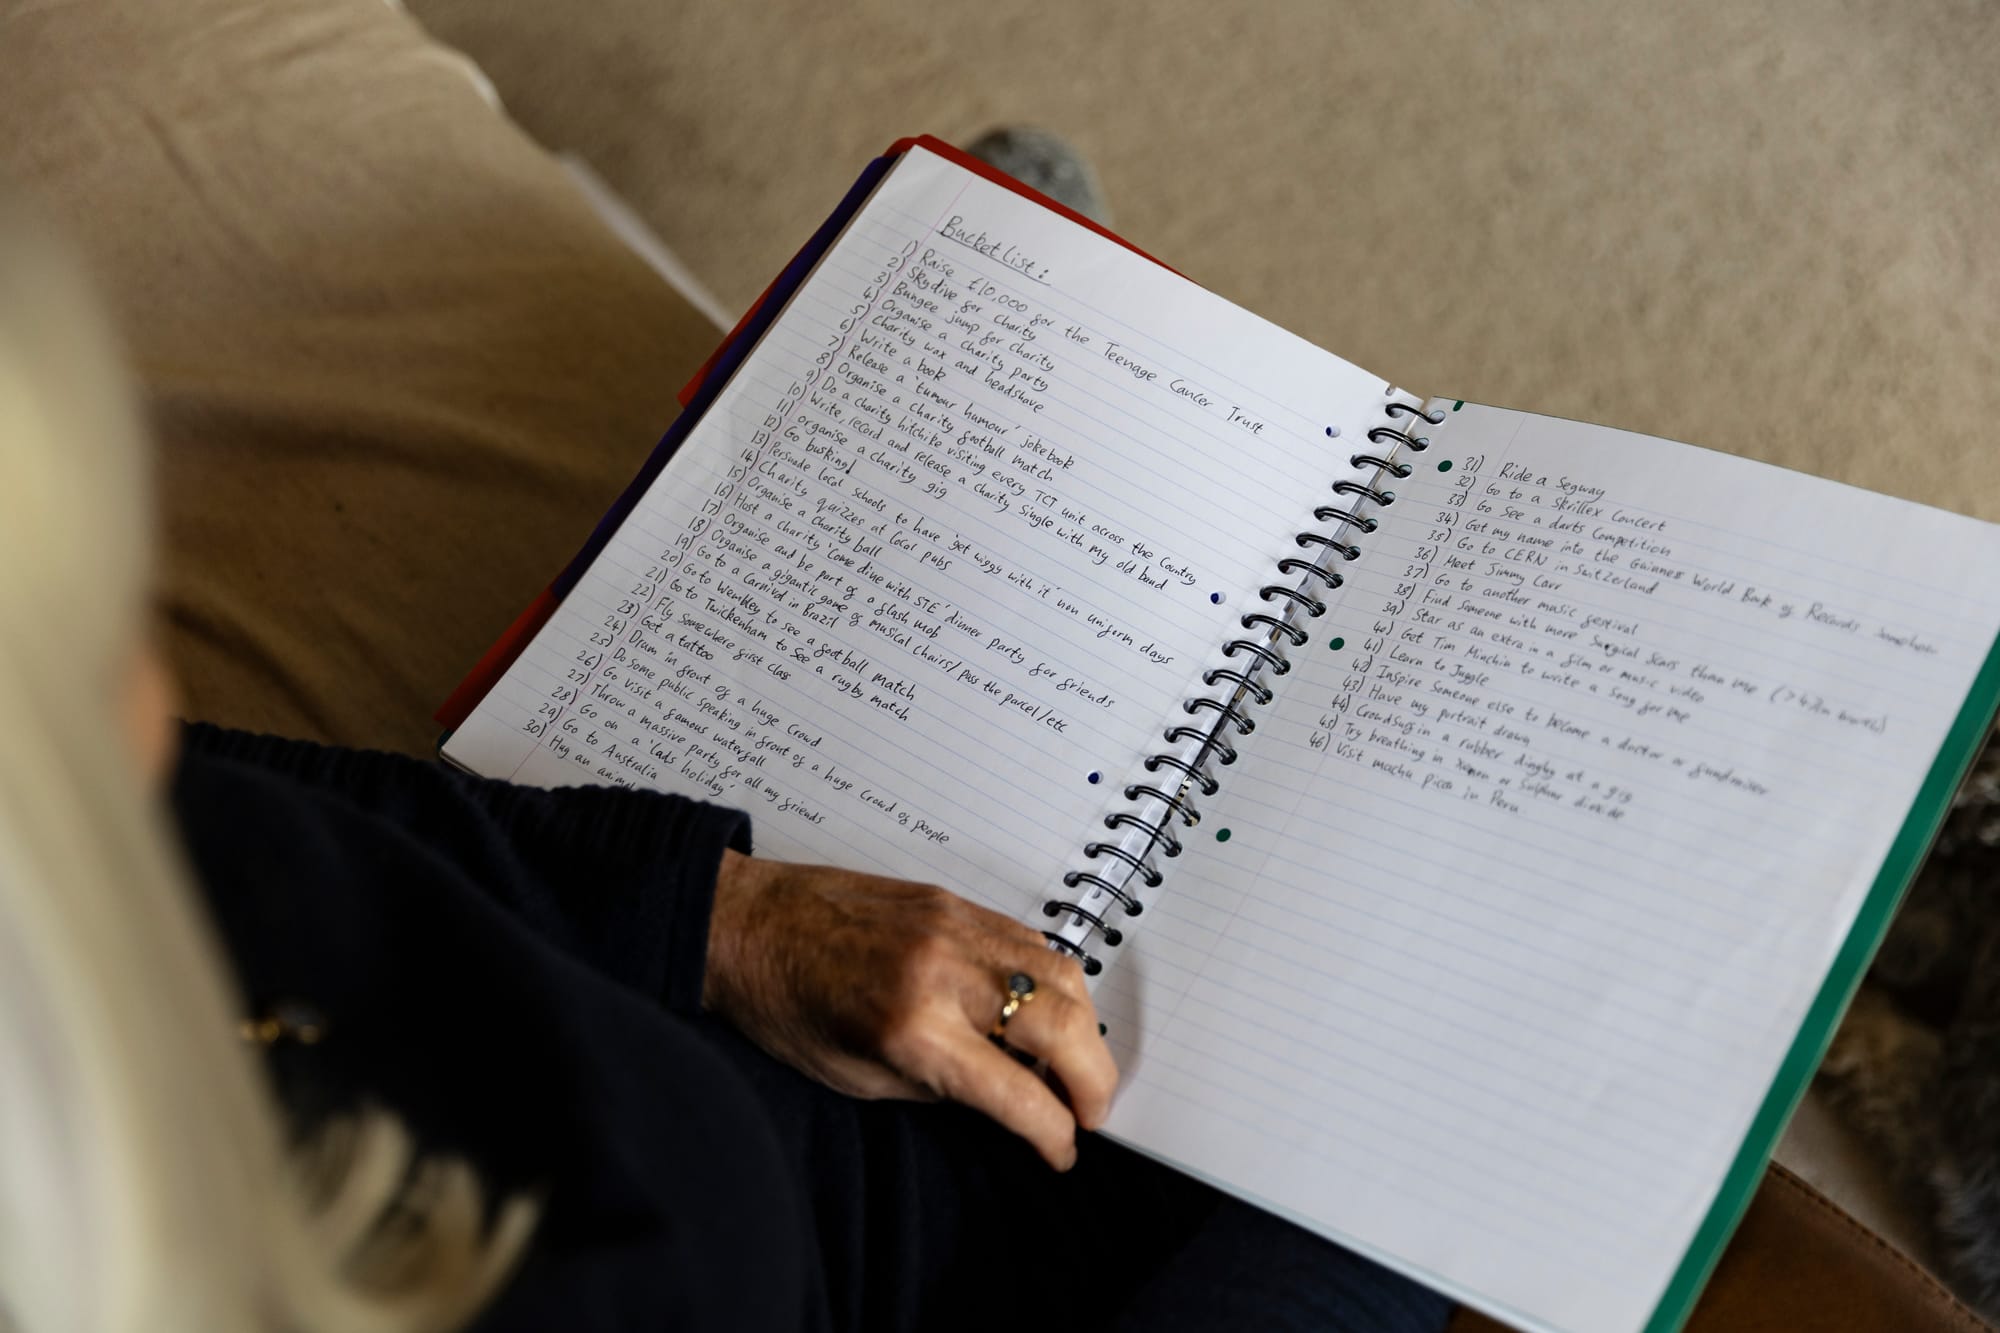 Bucket List:
1) Raise £10,000 for the Teenage Cancer Trust
2) Skydive for Charity
3) Bungee jump for Charity
4) Organise a charity party
5) Charity wax and headshave
6) Write a book
7) Release a 'tumour humour' jokebook
8) Organise a charity football match
9) Do a charity hitchike visiting every TCT unit across the Country
10) Write, record and release a charity Single with my old band
11) organise a charity gig
12) Go busking!
13) Persuade local schools to have 'get wiggy with it' non uniform days
14) Charity quizzes at local pubs
15) Organise a Charity ball
16) Host a charity 'Come dine with STE' dinner party for friends
17) Organise and be part of a flash mob
18) Organise a gigantic game of musical Chairs/pass the parcel/etc
19) Go to a Carnival in Brazil
20) Go to Wembley to see a football match
21) Go to Twickenham to See a rugby match
22) Fly Somewhere first class
23) Get a tattoo
24) Drum in front of a huge Crowd
25) Do some public speaking in front of a huge Crowd of people
26) Go visit a famous waterfall
27) Throw a massive party for all my friends
28) Go on a 'lads holiday'
29) Go to Australia
30) Hug an animal
31) Ride a Segway
32) Go to a Skrillex Concert
33) Go See a darts Competition
34) Get my name into the Guinness World Book of Records Somehow
35) Go to CERN in Switzerland
36) Meet Jimmy Carr
37) Go to another music festival
38) Find Someone with more Surgical Scars than me
39) Star as an extra in a film or music video
40) Get Tim Minchin to write a song for me
41) Learn to Juggle
42) Inspire Someone else to become a doctor or fundraiser
43) Have my portrait drawn
44) Crowdsurf in a rubber dinghy at a gig
45) Try breathing in Xenon or Sulphur
46) Visit machu picu in Peru